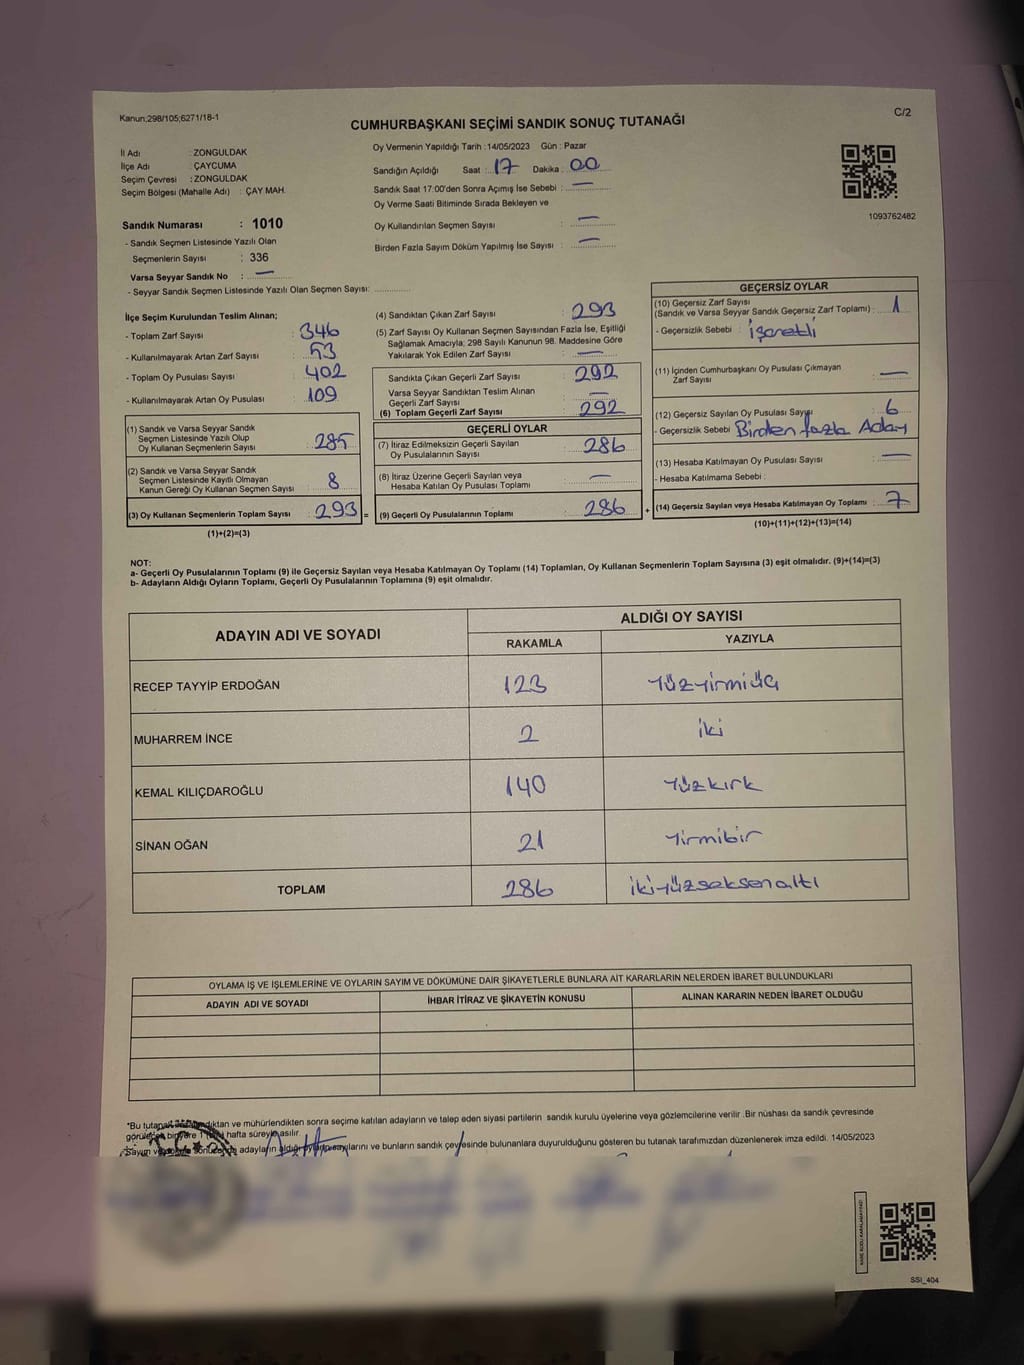 Kanun;298/105;6271/18-1
C/2
CUMHURBAŞKANI SEÇİMİ SANDIK SONUÇ TUTANAĞI
İl Adı : ZONGULDAK
İlçe Adı : ÇAYCUMA
Seçim Çevresi : ZONGULDAK
Seçim Bölgesi (Mahalle Adı) : ÇAY MAH.
Oy Vermenin Yapıldığı Tarih : 14/05/2023 Gün : Pazar
Sandığın Açıldığı Saat : 17 Dakika : 00
Sandık Saat 17:00'den Sonra Açımış İse Sebebi : —
Oy Verme Saati Bitiminde Sırada Bekleyen ve
Oy Kullandırılan Seçmen Sayısı : —
Birden Fazla Sayım Döküm Yapılmış İse Sayısı : —
1093762482
Sandık Numarası : 1010
- Sandık Seçmen Listesinde Yazılı Olan
Seçmenlerin Sayısı : 336
Varsa Seyyar Sandık No : —
- Seyyar Sandık Seçmen Listesinde Yazılı Olan Seçmen Sayısı:
İlçe Seçim Kurulundan Teslim Alınan;
- Toplam Zarf Sayısı : 346
- Kullanılmayarak Artan Zarf Sayısı : 53
- Toplam Oy Pusulası Sayısı : 402
- Kullanılmayarak Artan Oy Pusulası : 109
(1) Sandık ve Varsa Seyyar Sandık
Seçmen Listesinde Yazılı Olup
Oy Kullanan Seçmenlerin Sayısı : 285
(2) Sandık ve Varsa Seyyar Sandık
Seçmen Listesinde Kayıtlı Olmayan
Kanun Gereği Oy Kullanan Seçmen Sayısı : 8
(3) Oy Kullanan Seçmenlerin Toplam Sayısı : 293 =
(1)+(2)=(3)
(4) Sandıktan Çıkan Zarf Sayısı : 293
(5) Zarf Sayısı Oy Kullanan Seçmen Sayısından Fazla İse, Eşitliği
Sağlamak Amacıyla; 298 Sayılı Kanunun 98. Maddesine Göre
Yakılarak Yok Edilen Zarf Sayısı : —
Sandıkta Çıkan Geçerli Zarf Sayısı : 292
Varsa Seyyar Sandıktan Teslim Alınan
Geçerli Zarf Sayısı : —
(6) Toplam Geçerli Zarf Sayısı : 292
GEÇERLİ OYLAR
(7) İtiraz Edilmeksizin Geçerli Sayılan
Oy Pusulalarının Sayısı : 286
(8) İtiraz Üzerine Geçerli Sayılan veya
Hesaba Katılan Oy Pusulası Toplamı : —
(9) Geçerli Oy Pusulalarının Toplamı : 286 +
GEÇERSİZ OYLAR
(10) Geçersiz Zarf Sayısı
(Sandık ve Varsa Seyyar Sandık Geçersiz Zarf Toplamı) : 1
- Geçersizlik Sebebi : işaretli
(11) İçinden Cumhurbaşkanı Oy Pusulası Çıkmayan
Zarf Sayısı : —
(12) Geçersiz Sayılan Oy Pusulası Sayısı : 6
- Geçersizlik Sebebi : Birden fazla Aday
(13) Hesaba Katılmayan Oy Pusulası Sayısı : —
- Hesaba Katılmama Sebebi :
(14) Geçersiz Sayılan veya Hesaba Katılmayan Oy Toplamı : 7
(10)+(11)+(12)+(13)=(14)
NOT:
a- Geçerli Oy Pusulalarının Toplamı (9) ile Geçersiz Sayılan veya Hesaba Katılmayan Oy Toplamı (14) Toplamları, Oy Kullanan Seçmenlerin Toplam Sayısına (3) eşit olmalıdır. (9)+(14)=(3)
b- Adayların Aldığı Oyların Toplamı, Geçerli Oy Pusulalarının Toplamına (9) eşit olmalıdır.
ADAYIN ADI VE SOYADI ALDIĞI OY SAYISI
RAKAMLA YAZIYLA
RECEP TAYYİP ERDOĞAN 123 Yüzyirmiüç
MUHARREM İNCE 2 iki
KEMAL KILIÇDAROĞLU 140 Yüzkırk
SİNAN OĞAN 21 Yirmibir
TOPLAM 286 ikiyüzseksenaltı
OYLAMA İŞ VE İŞLEMLERİNE VE OYLARIN SAYIM VE DÖKÜMÜNE DAİR ŞİKAYETLERLE BUNLARA AİT KARARLARIN NELERDEN İBARET BULUNDUKLARI
ADAYIN ADI VE SOYADI İHBAR İTİRAZ VE ŞİKAYETİN KONUSU ALINAN KARARIN NEDEN İBARET OLDUĞU
*Bu tutanak ve mühürlendikten sonra seçime katılan adayların ve talep eden siyasi partilerin sandık kurulu üyelerine veya gözlemcilerine verilir .Bir nüshası da sandık çevresinde
bir yere 1 hafta süreyle asılır
Sayım adayların aldığı sayılarını ve bunların sandık çevresinde bulunanlara duyurulduğunu gösteren bu tutanak tarafımızdan düzenlenerek imza edildi. 14/05/2023
SSI_404